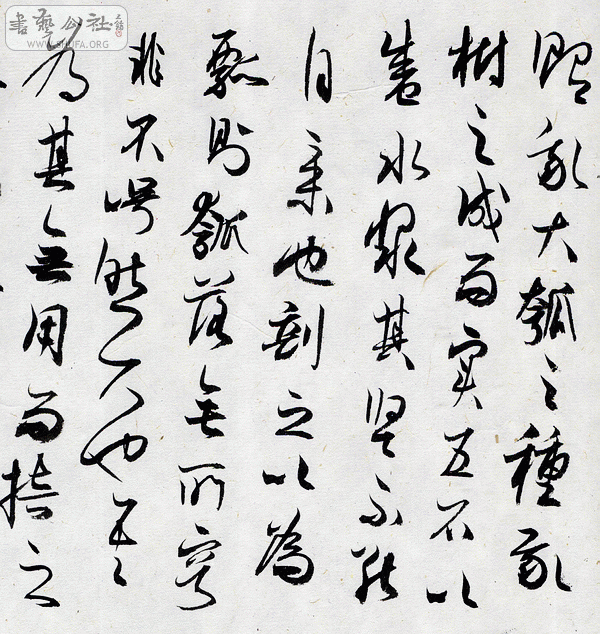 書藝公社
WWW.SHUFA.ORG
貽我大瓠之種我
樹之成而實五石以
盛水漿其堅不能
自舉也剖之以為
瓢則瓠落無所容
非不呺然大也吾
為其無用而掊之